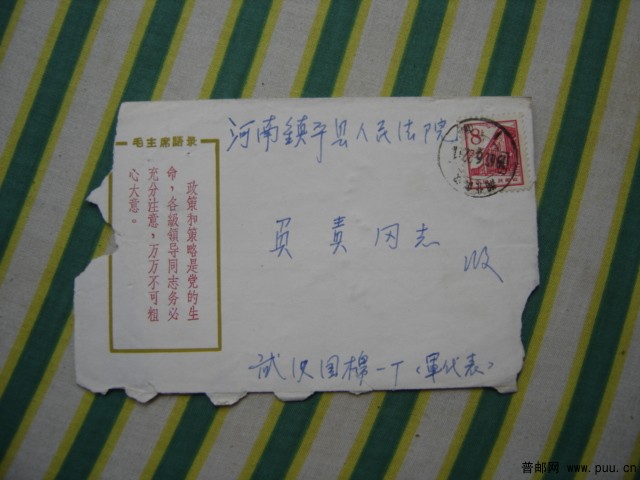 毛主席語录
政策和策略是党的生
命，各級領导同志务必
充分注意，万万不可粗
心大意。
河南鎮平县人民法院
負責同志
收
武汉国棉一厂(軍代表)
8
普邮网 www.puu.cn